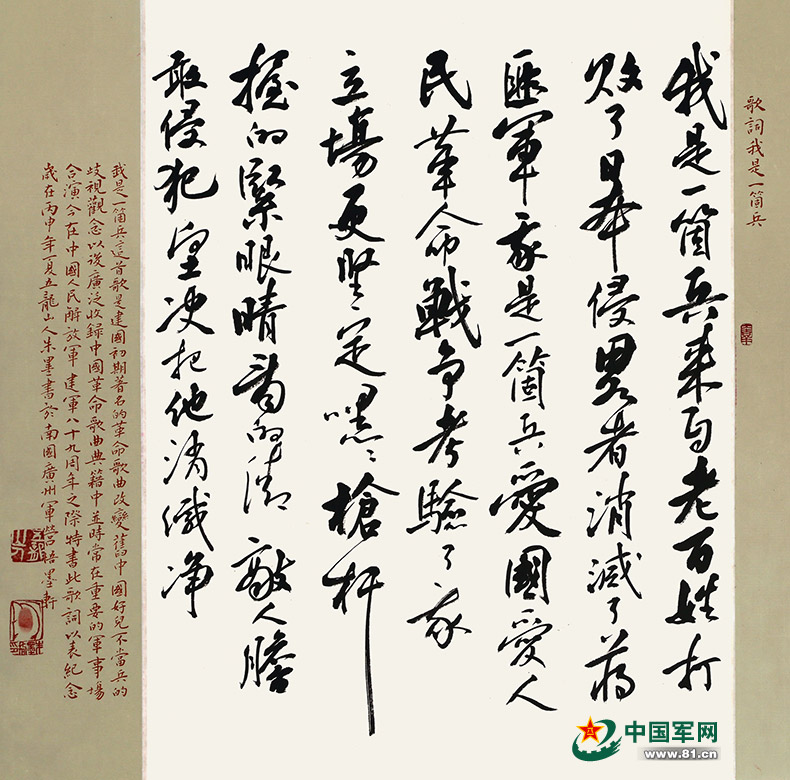 歌詞我是一箇兵
我是一箇兵来自老百姓打
败了日本侵畧者消滅了蒋
匪軍我是一箇兵愛國愛人
民革命戰争考驗了我
立場更坚定嘿〻槍杆
握的緊眼睛看的清敵人膽
敢侵犯坚决把他消滅净
我是一箇兵這首歌是建國初期著名的革命歌曲改變舊中國好兒不當兵的
歧視觀念以後廣泛收録中國革命歌曲典籍中並時常在重要的軍事場
合演今在中國人民解放軍建軍八十九周年之際特書此歌詞以表紀念
歲在丙申年夏五龍山人朱墨書於南國廣州軍營墨軒
中国军网
www.81.cn